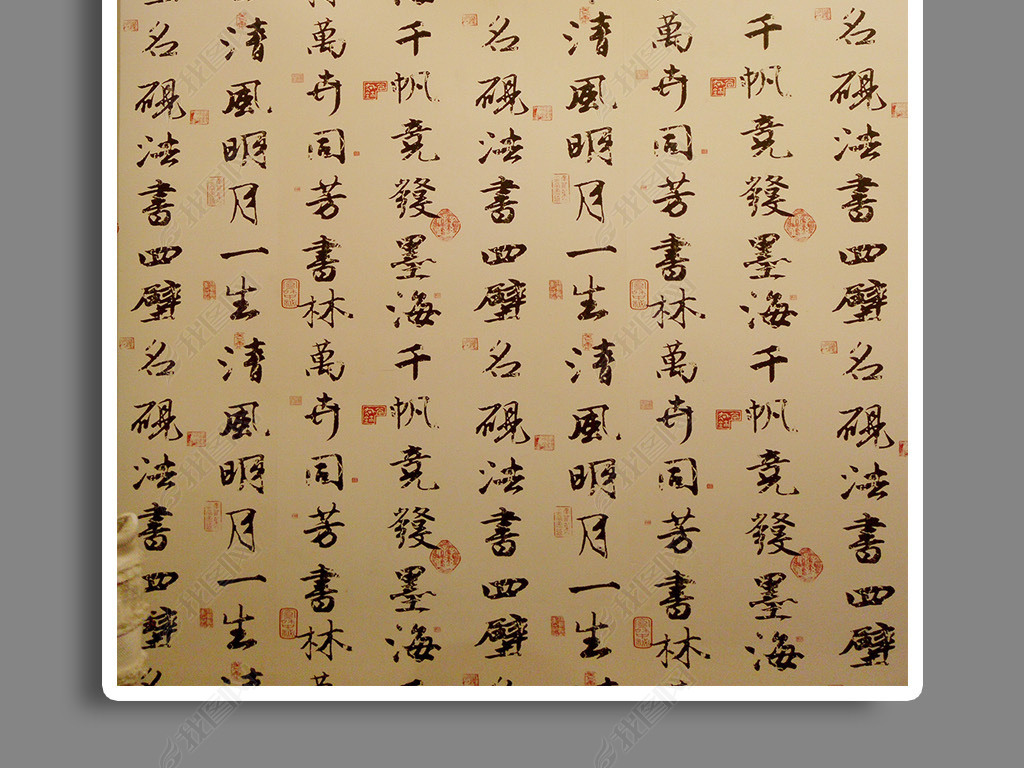 名硯法書四壁名硯法書四壁
千帆竞發墨海千帆竞發墨海
萬卉同芳書林萬卉同芳書林
清風明月一生清風明月一生
名硯法書四壁名硯法書四壁
千帆竞發墨海千帆竞發墨海
萬卉同芳書林萬卉同芳書林
清風明月一生清風明月一生
名硯法書四壁名硯法書四壁